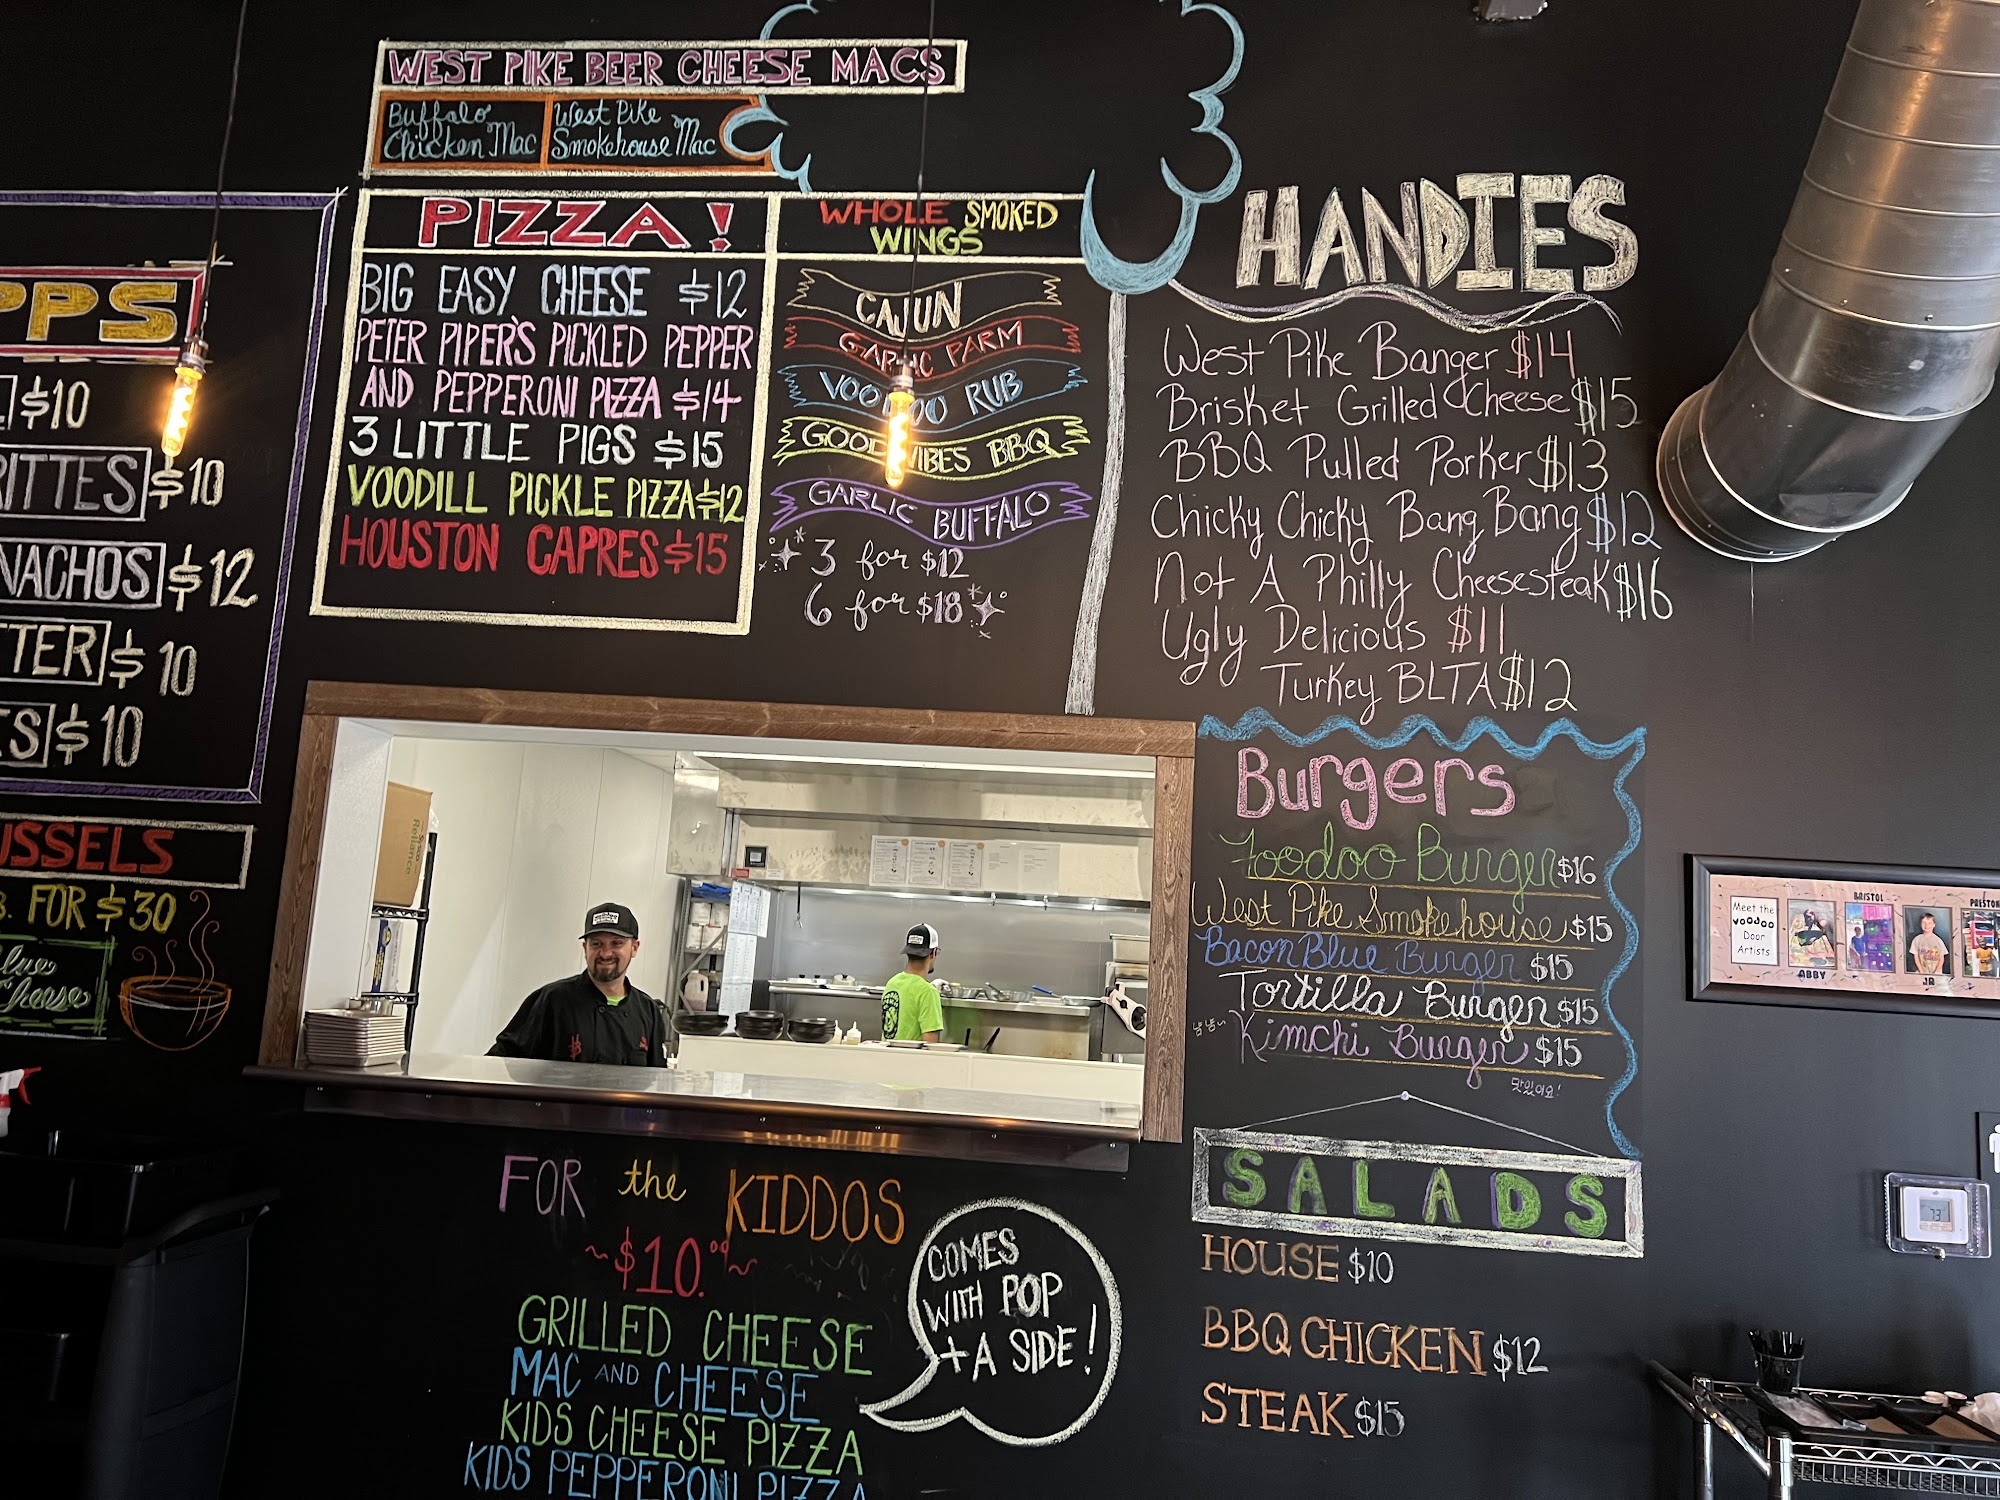 WEST PIKE BEER CHEESE MACS
Buffalo
Chicken Mac
West Pike
Smokehouse Mac
PPS
$10
RITTES $10
NACHOS $12
TTER $10
ES $10
USSELS
FOR $30
Blue
Cheese
PIZZA!
BIG EASY CHEESE $12
PETER PIPER'S PICKLED PEPPER
AND PEPPERONI PIZZA $14
3 LITTLE PIGS $15
VOODILL PICKLE PIZZA $12
HOUSTON CAPRES $15
WHOLE SMOKED
WINGS
CAJUN
GARLIC PARM
VOODOO RUB
GOOD VIBES BBQ
GARLIC BUFFALO
3 for $12
6 for $18
HANDIES
West Pike Banger $14
Brisket Grilled Cheese $15
BBQ Pulled Porker $13
Chicky Chicky Bang Bang $12
Not A Philly Cheesesteak $16
Ugly Delicious $11
Turkey BLTA $12
Burgers
Voodoo Burger $16
West Pike Smokehouse $15
Bacon Blue Burger $15
Tortilla Burger $15
냠냠~ Kimchi Burger $15
맛있어요!
SALADS
HOUSE $10
BBQ CHICKEN $12
STEAK $15
FOR the KIDDOS
~$10.00~
GRILLED CHEESE
MAC AND CHEESE
KIDS CHEESE PIZZA
KIDS PEPPERONI PIZZA
COMES
WITH POP
+ A SIDE!
Sysco
Reliance
Meet the
voodoo
Door
Artists
ABBY
BRISTOL
JR
PRESTON
73